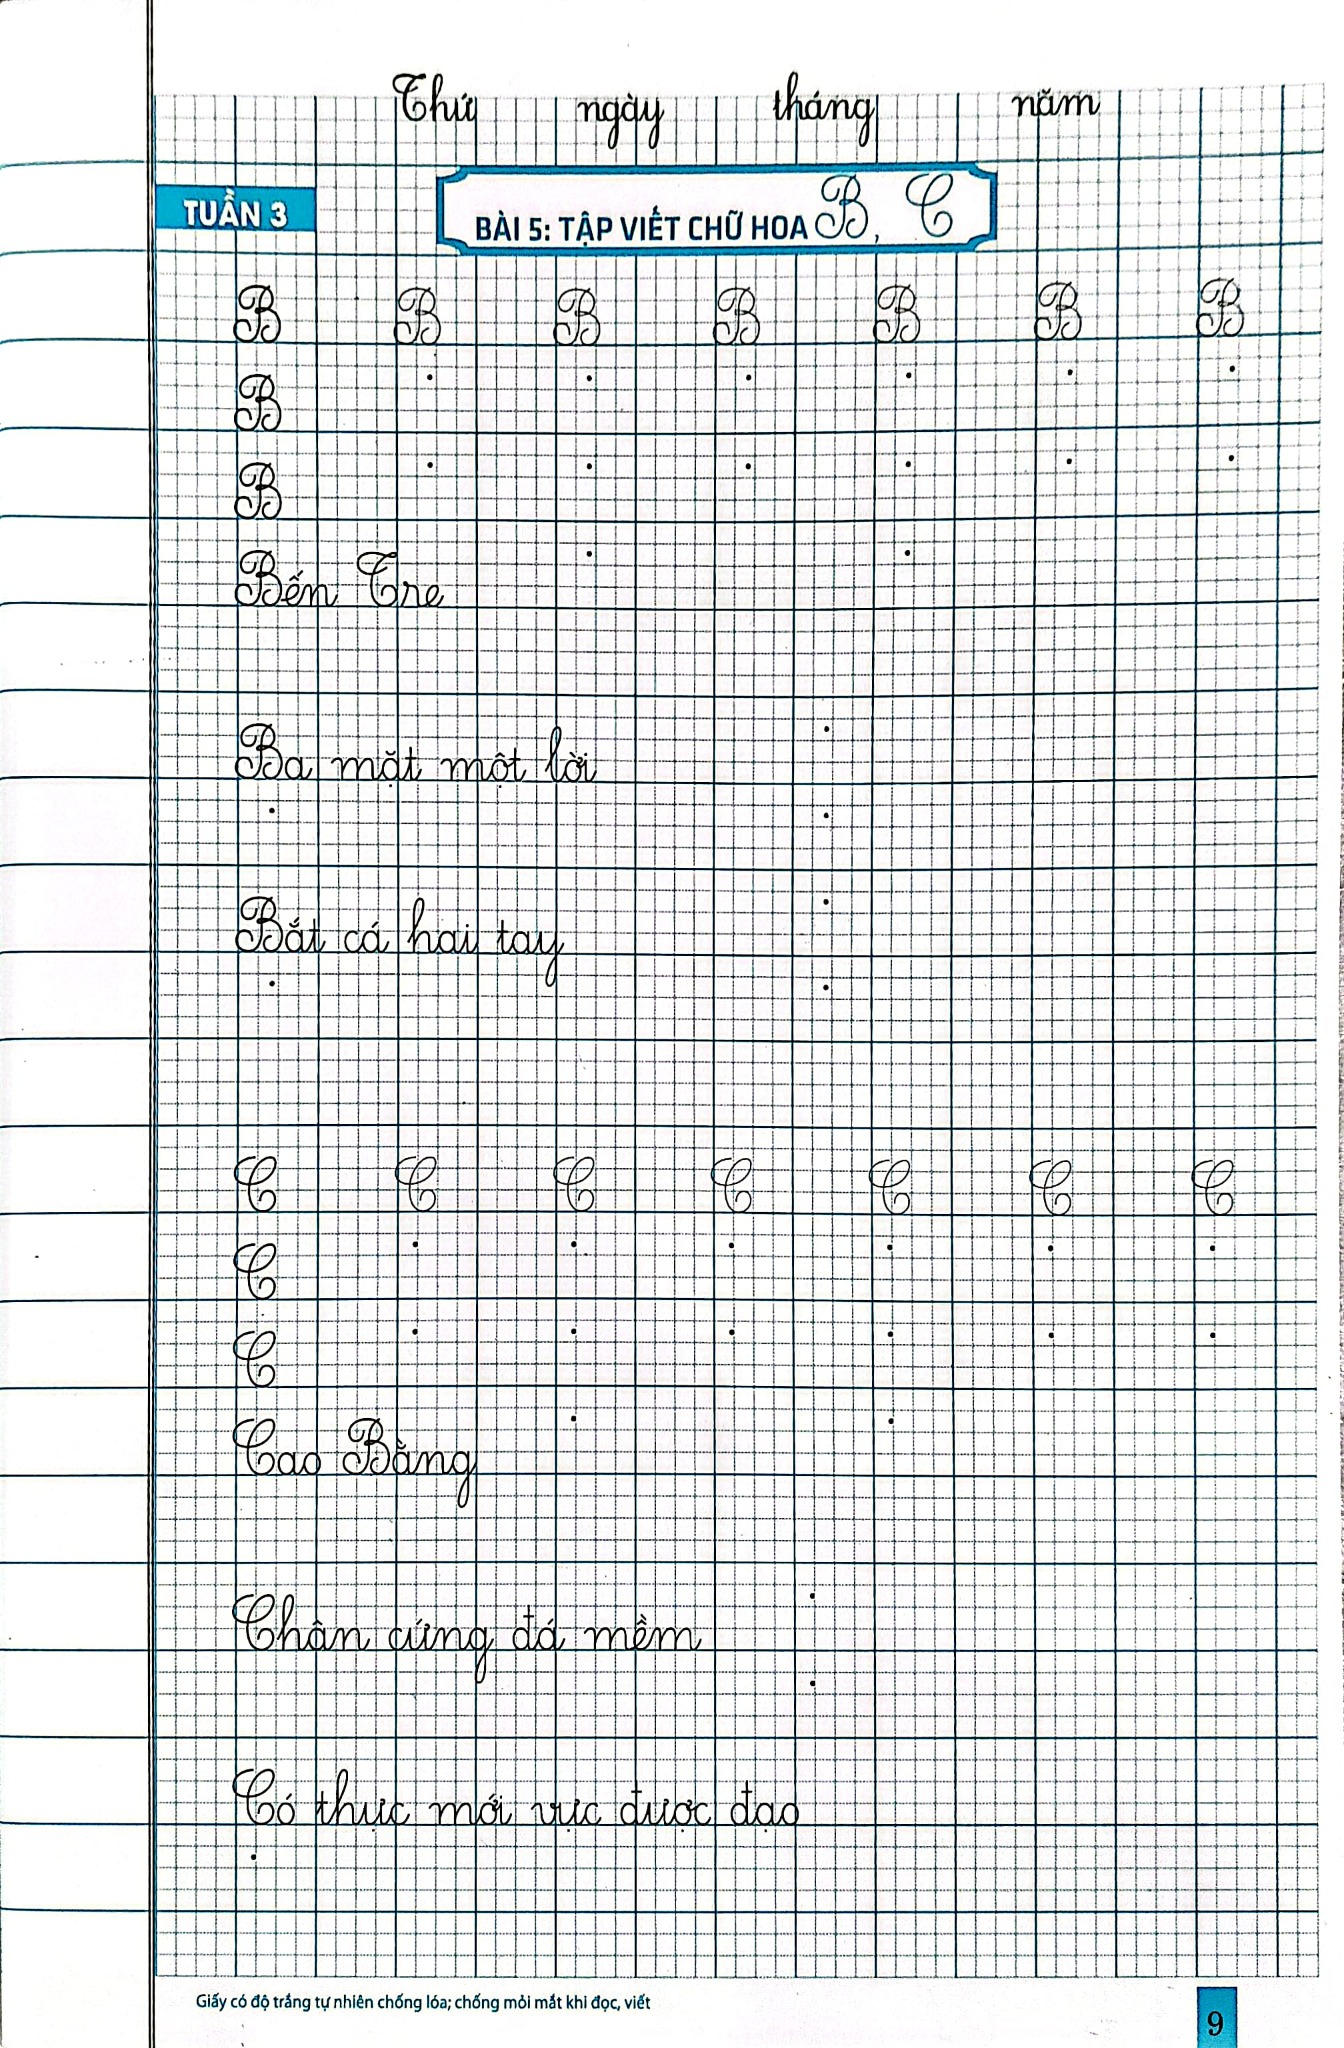 Thứ ngày tháng năm
TUẦN 3
BÀI 5: TẬP VIẾT CHỮ HOA B, C
B B B B B B B
B
B
Bến Tre
Ba mặt một lời
Bắt cá hai tay
C C C C C C C
C
C
Cao Bằng
Chân cứng đá mềm
Có thực mới vực được đạo
Giấy có độ trắng tự nhiên chống lóa; chống mỏi mắt khi đọc, viết
9